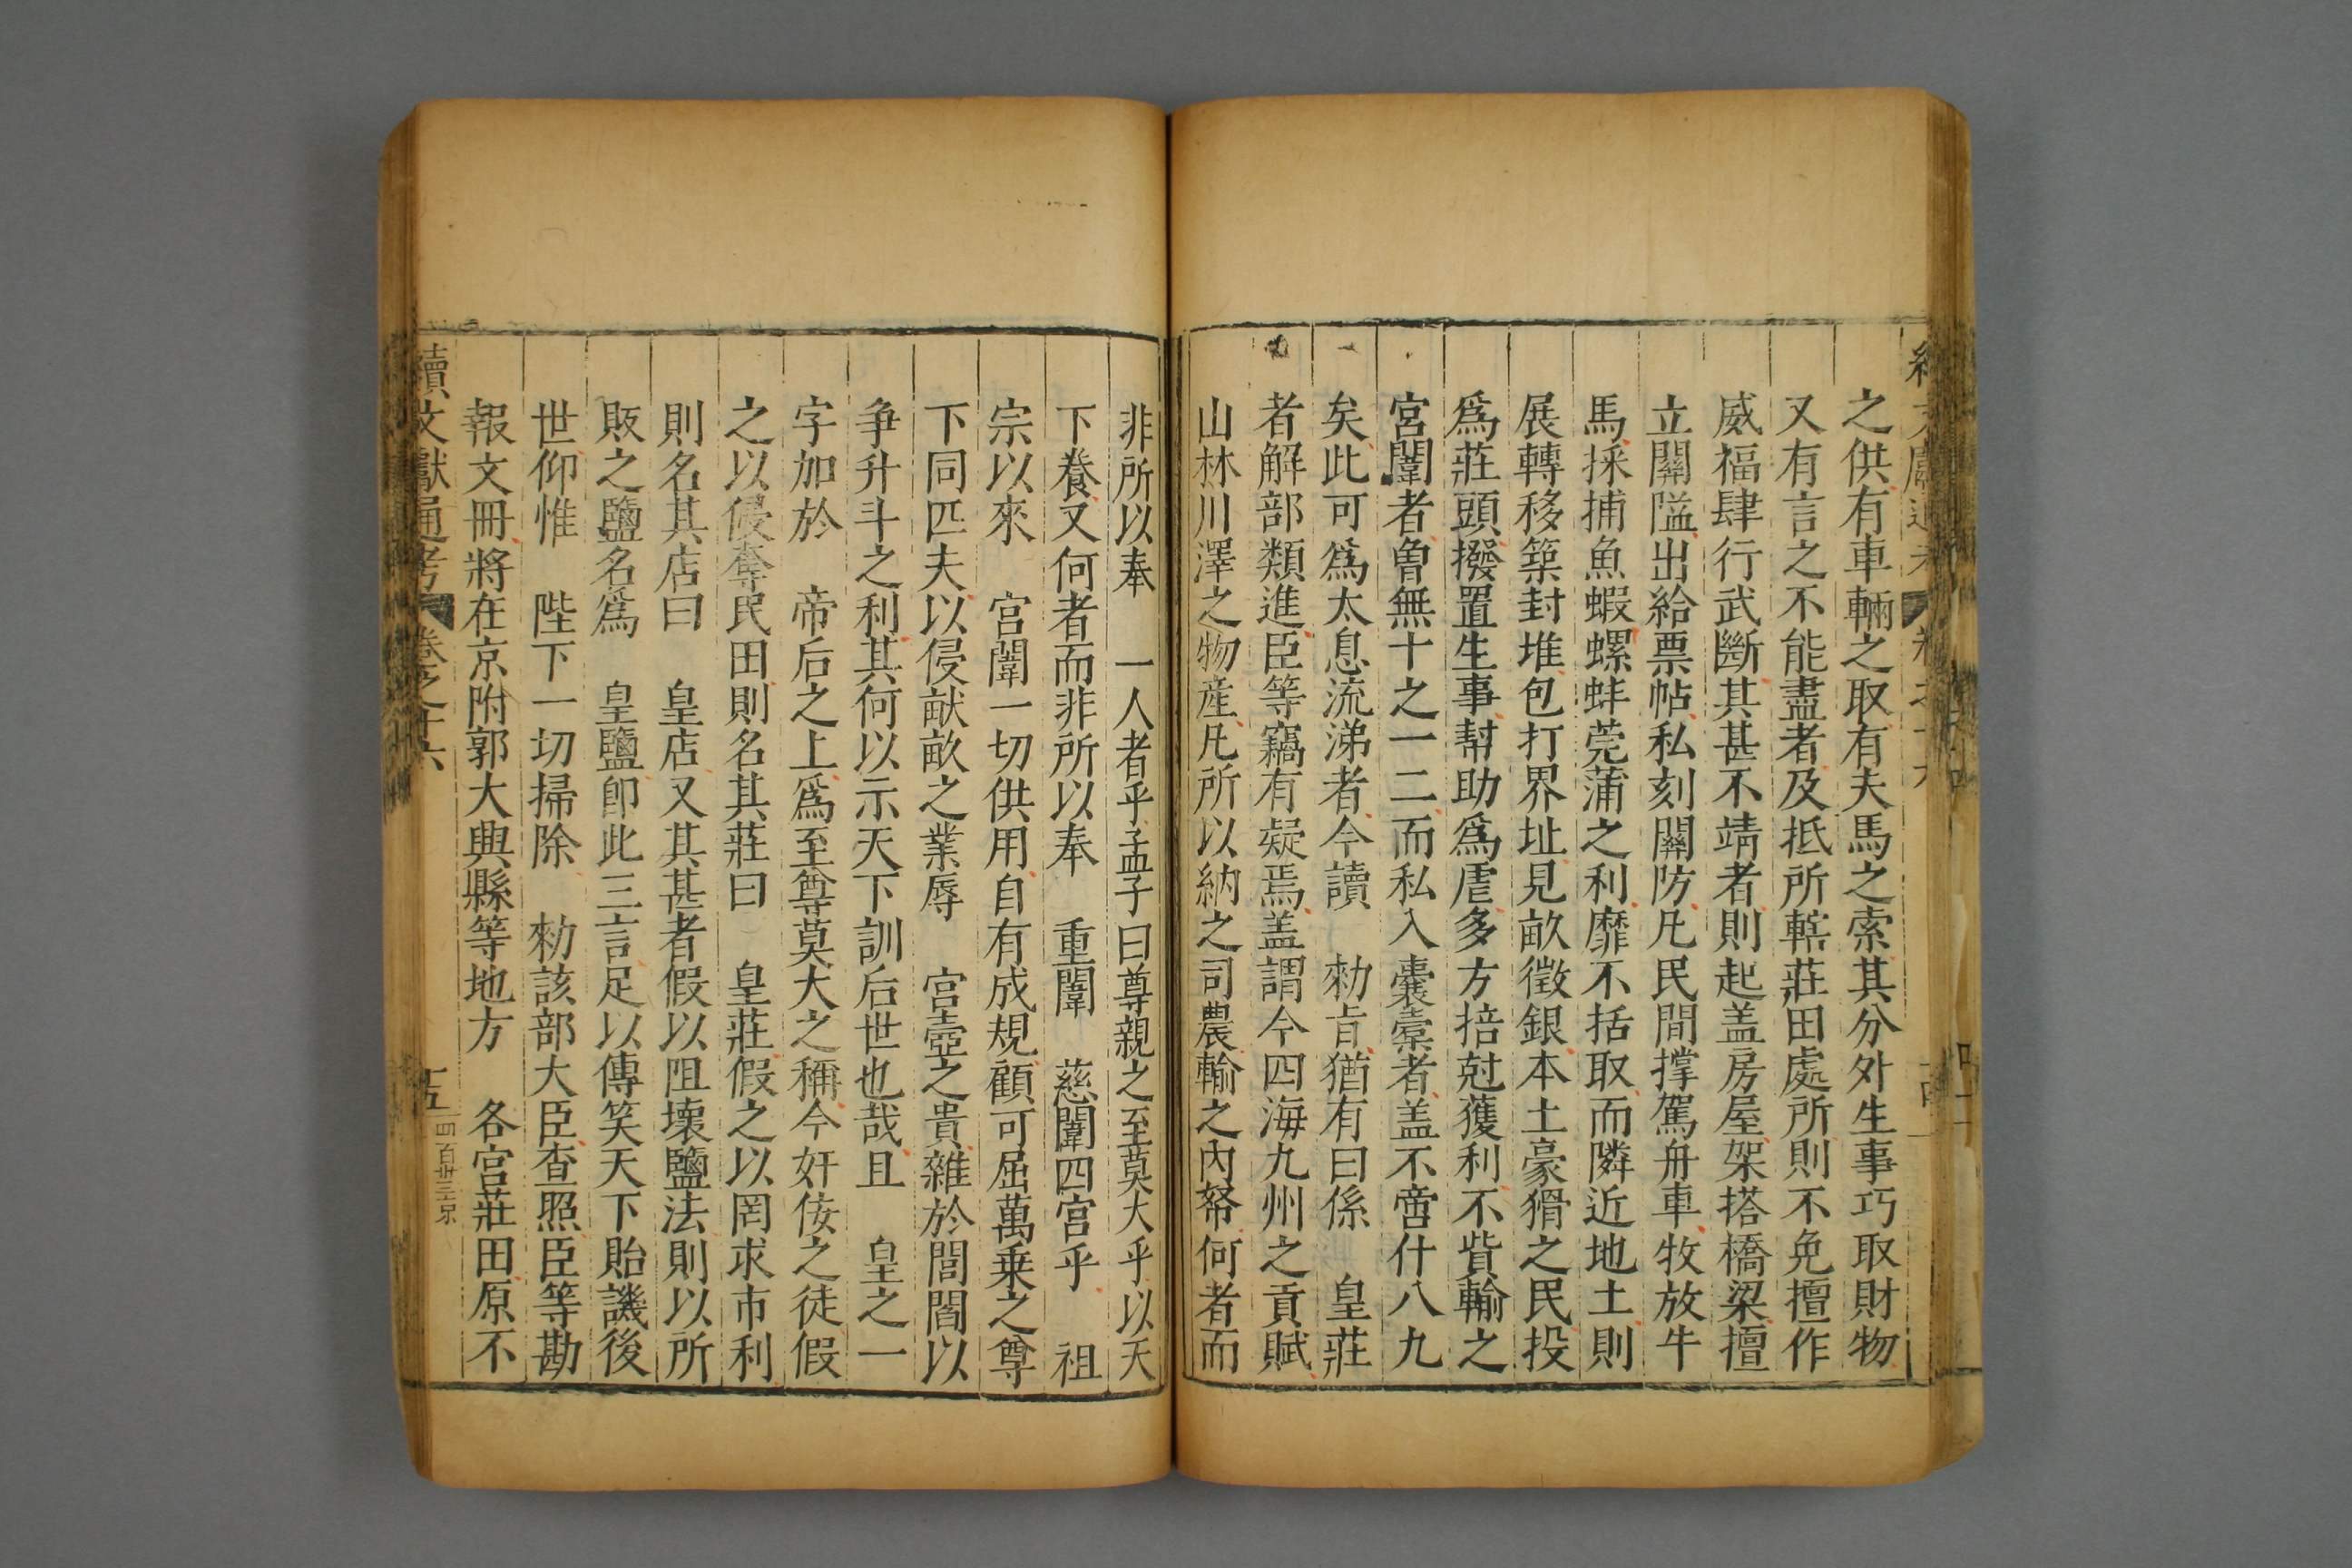 之供有車輛之取有夫馬之索其分外生事巧取財物
又有言之不能盡者及抵所轄莊田處所則不免擅作
威福肆行武斷其甚不靖者則起盖房屋架搭橋梁擅
立關隘出給票帖私刻關防凡民間撑駕舟車牧放牛
馬採捕魚蝦螺蚌莞蒲之利靡不括取而隣近地土則
展轉移築封堆包打界址見畝徵銀本土豪猾之民投
爲莊頭撥置生事幫助爲虐多方掊尅獲利不貲輸之
宮闈者曾無十之一二而私入囊橐者盖不啻什八九
矣此可爲太息流涕者今讀　勑旨猶有曰係　皇莊
者解部類進臣等竊有疑焉盖謂今四海九州之貢賦
山林川澤之物産凡所以納之司農輸之內帑何者而
非所以奉　一人者乎孟子曰尊親之至莫大乎以天
下養又何者而非所以奉　重闈　慈闈四宮乎　祖
宗以來　宮闈一切供用自有成規顧可屈萬乗之尊
下同匹夫以侵畎畝之業辱　宮壼之貴雜於閭閻以
爭升斗之利其何以示天下訓后世也哉且　皇之一
字加於　帝后之上爲至尊莫大之稱今奸侫之徒假
之以侵奪民田則名其莊曰　皇莊假之以罔求市利
則名其店曰　皇店又其甚者假以阻壊鹽法則以所
販之鹽名爲　皇鹽卽此三言足以傳笑天下貽譏後
世仰惟　陛下一切掃除　勑該部大臣查照臣等勘
報文冊將在京附郭大興縣等地方　各宮莊田原不
續文獻通考　卷之十六　十五　四百卅三